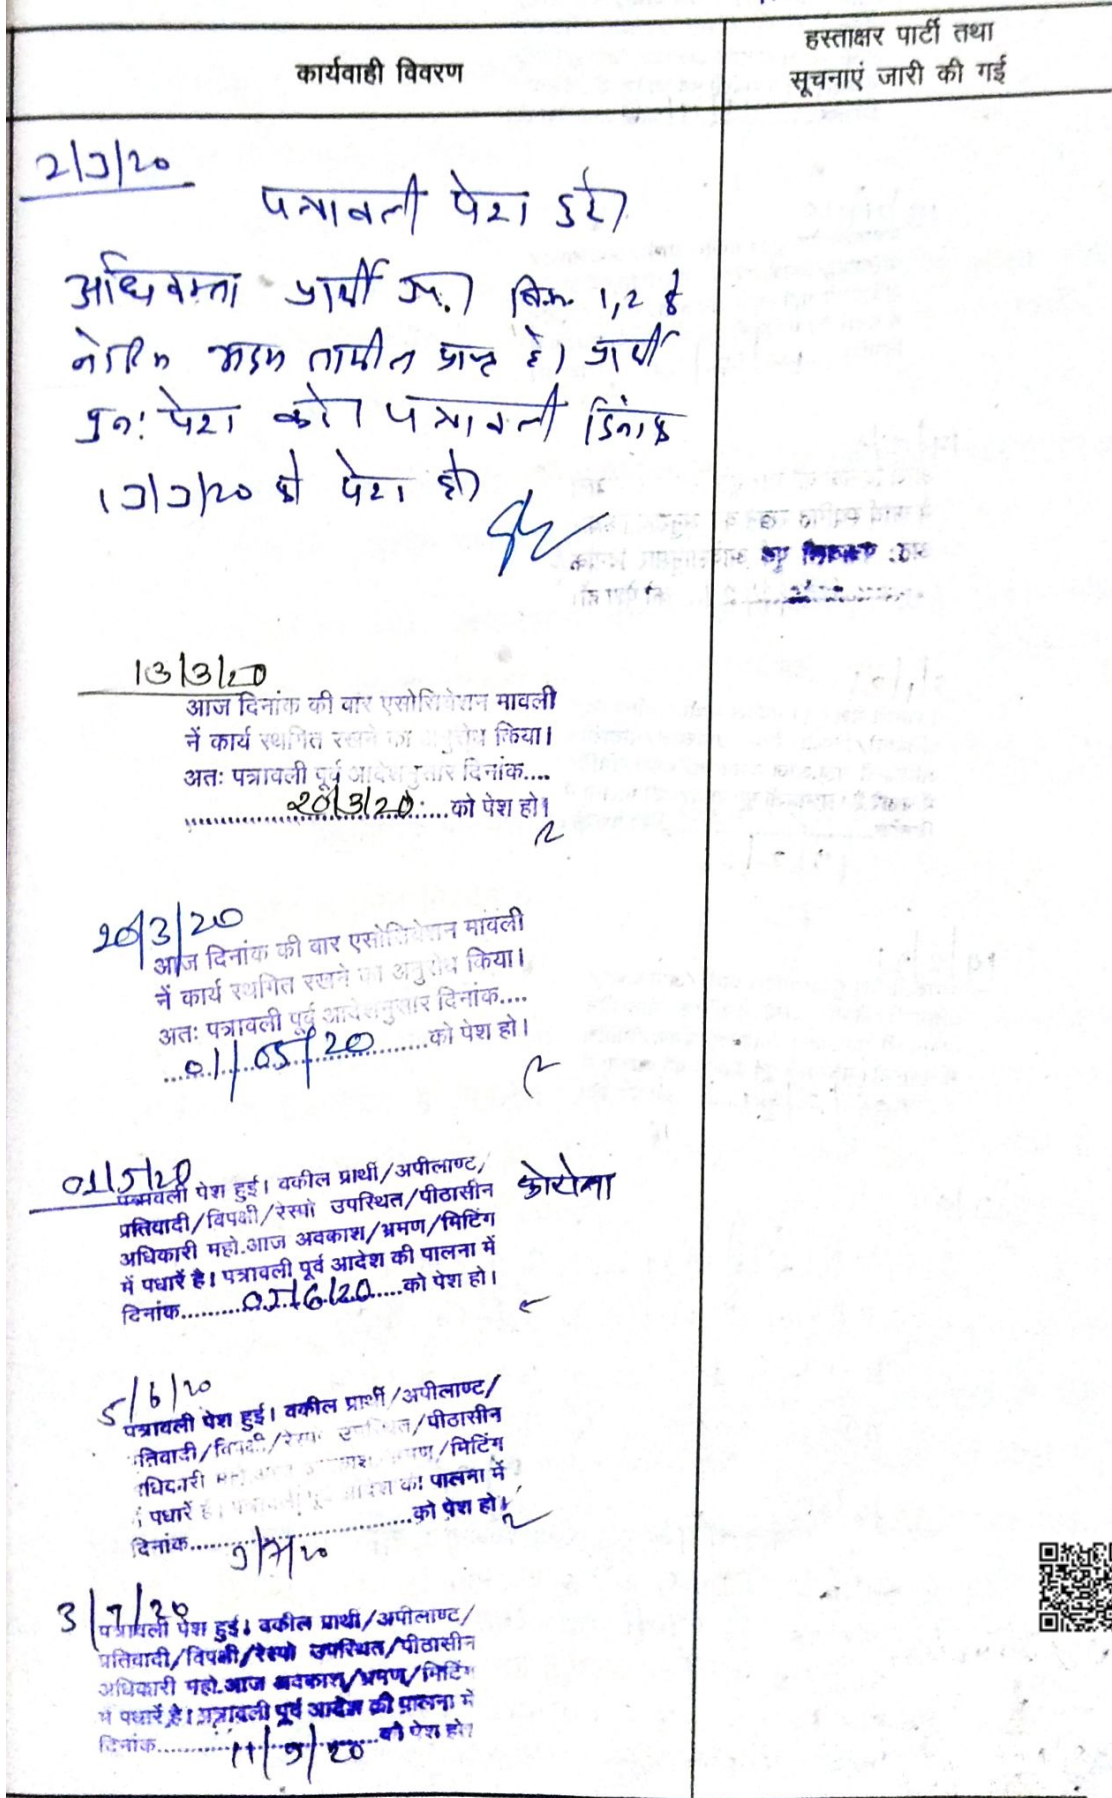 कार्यवाही विवरण
हस्ताक्षर पार्टी तथा
सूचनाएं जारी की गई
2/3/20
पत्रावली पेश हुई।
अधिवक्ता प्रार्थी उप.। विप. 1,2 के
नोटिस अदम तामील प्राप्त है। प्रार्थी
पुनः पेश करे। पत्रावली दिनांक
13/3/20 को पेश हो।
13/3/20
आज दिनांक की बार एसोसियेशन मावली
नें कार्य स्थगित रखने का अनुरोध किया।
अतः पत्रावली पूर्व आदेशनुसार दिनांक....
20/3/20 को पेश हो।
20/3/20
आज दिनांक की बार एसोसियेशन मावली
नें कार्य स्थगित रखने का अनुरोध किया।
अतः पत्रावली पूर्व आदेशनुसार दिनांक....
01/05/20 को पेश हो।
01/5/20
पत्रावली पेश हुई। वकील प्रार्थी/अपीलाण्ट/ कोरोना
प्रतिवादी/विपक्षी/रेस्पो उपस्थित/पीठासीन
अधिकारी महो.आज अवकाश/भ्रमण/मिटिंग
में पधारें है। पत्रावली पूर्व आदेश की पालना में
दिनांक.......05/6/20....को पेश हो।
5/6/20
पत्रावली पेश हुई। वकील प्रार्थी/अपीलाण्ट/
प्रतिवादी/विपक्षी/रेस्पो उपस्थित/पीठासीन
अधिकारी महो.आज अवकाश/भ्रमण/मिटिंग
में पधारें है। पत्रावली पूर्व आदेश की पालना में
दिनांक..........को पेश हो।
3/7/20
3/7/20
पत्रावली पेश हुई। वकील प्रार्थी/अपीलाण्ट/
प्रतिवादी/विपक्षी/रेस्पो उपस्थित/पीठासीन
अधिकारी महो.आज अवकाश/भ्रमण/मिटिंग
में पधारें है। पत्रावली पूर्व आदेश की पालना में
दिनांक..........को पेश हो।
11/9/20